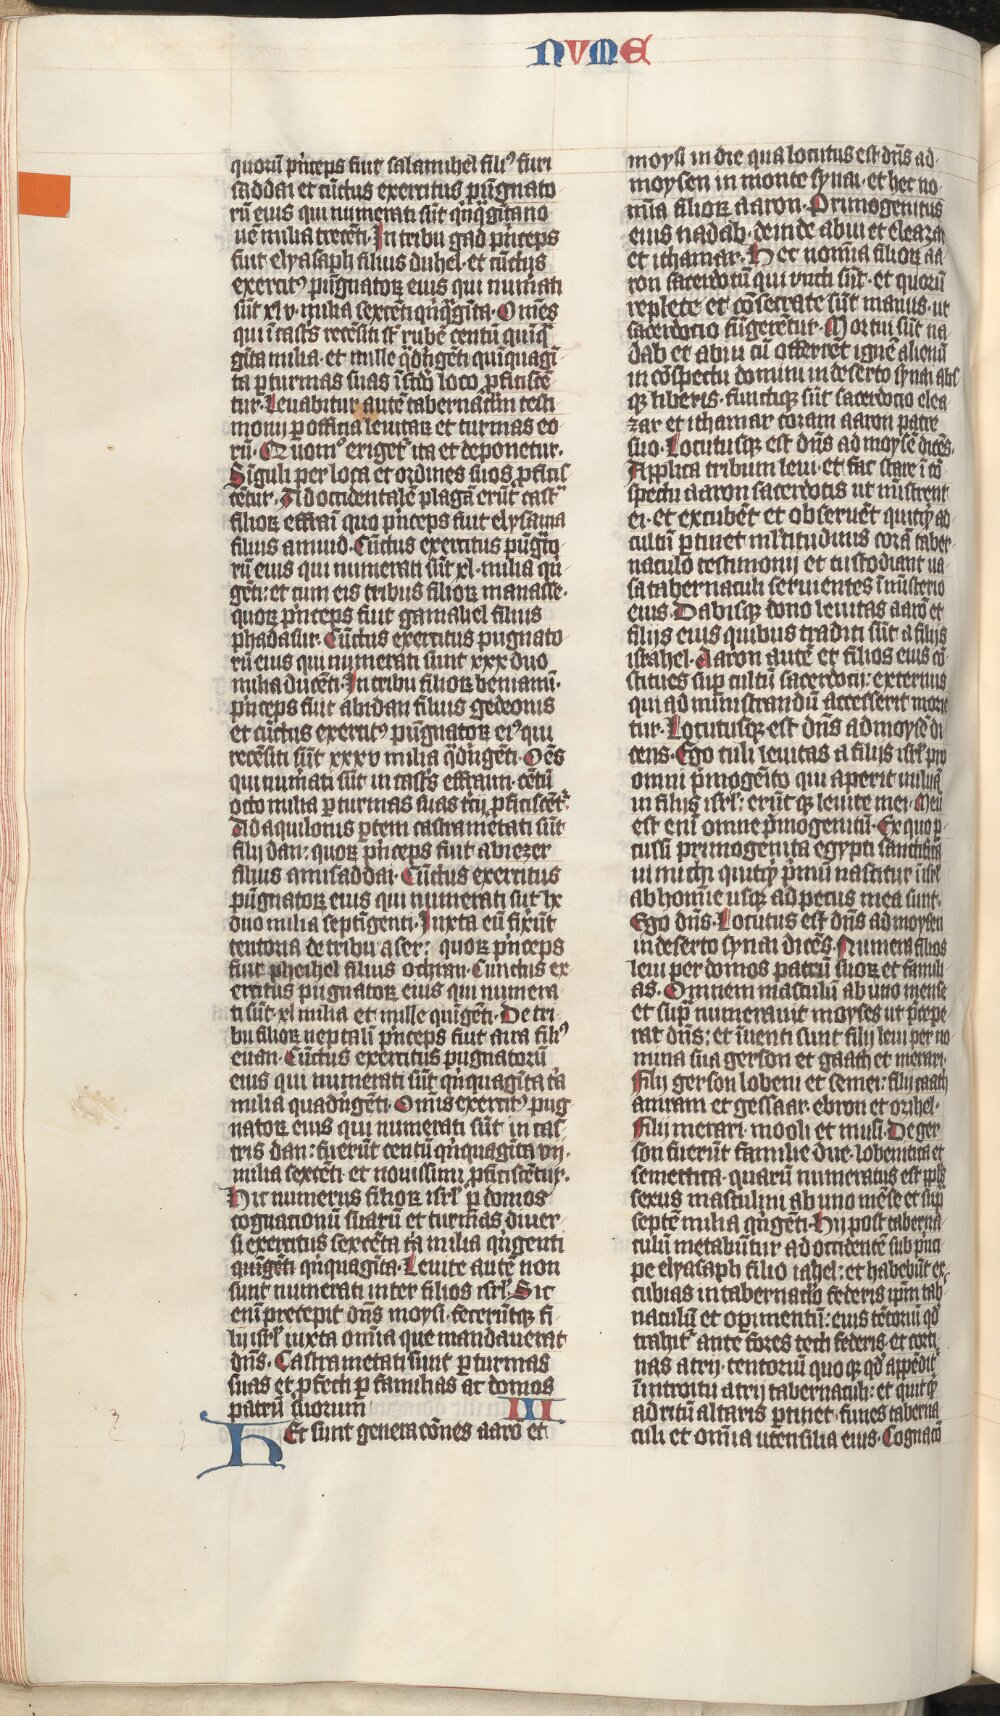 NVME
quorū pͥnceps fuit salamihel filiꝰ suri
saddai et cūctus exercitus pūgnato
rū eius qui numerati sūt qͥnqͣgītano
uē milia trecēti· In tribu gad pͥnceps
fuit elyasaph filius duhel· et cūctus
exercitꝰ pūgnatoꝝ eius qui nūmati
sūt xlv· milia sexcēti qͥnqͣgīta· Omēs
qui ī castͥs recēsiti sͭ rubē centū quīqͣ
gīta milia· et mille qͣdͥngēti quīquagī
ta ꝑ turmas suas ī scdō loco ꝓficiscē
tur· Leuabitur autē tabernaclm̄ testi
monij ꝑ officia leuitaꝝ et turmas eo
rū· Quomͦ erigetͬ ita et deponetur·
Sīguli per loca et ordines suos ꝓficis
cētur· Ad occidentalē plagā erūt castͣ
filioꝝ effraī quo pͥnceps fuit elysama
filius amiud· Cūctus exercitus pūgͣto
rū eius qui numerati sūt xl· milia qͥn
gēti: et cum eis tribus filioꝝ manasse·
quoꝝ pͥnceps fuit gamaliel filius
phadasur· Cūctus exercitus pugnato
rū eius qui numerati sunt xxx duo
milia ducēti· In tribu filioꝝ beniami·
pͥnceps fuit abidan filius gedeonis
et cūctus exercitꝰ pūgnatoꝝ eiꝰ qui
recēsiti sūt xxxv milia qͣdͥngēti· Oēs
qui nūmati sūt in castͥs effraim· cētū
octo milia ꝑ turmas suas tcij ꝓficiscētͬ
Ad aquilonis ꝑtem castrametati sūt
filij dan: quoꝝ pͥnceps fuit abiezer
filius amisaddai· Cūctus exercitus
pūgnatoꝝ eius qui numerati sūt lx
duo milia septīgenti· Iuxta eū fixūt
tentoria de tribu aser: quoꝝ pͥnceps
fuit pheihel filius ochran· Cunctus ex
ercitus pugnatoꝝ eius qui numera
ti sūt· xl milia et mille quīgēti· De tri
bu filioꝝ neptali pͥnceps fuit aira filiꝰ
enan· Cūctus exercitus pugnatorū
eius qui numerati sūt qͥnquagīta ta
milia quadͥngēti· Omīs exercitꝰ pug
natoꝝ eius qui numerati sūt in cas
tris dan: fuerūt centū qͥnquagīta vij·
milia sexcēti· et nouissimi ꝓficiscētur·
Hic numerus filioꝝ isrl̄ ꝑ domos
cognationū suarū et turmas diuer
si exercitus sexcēta ta milia qͥngenti
quīgēti qͥnquagīta· Leuite autē non
sunt numerati inter filios isrl̄· Sic
enī precepit dn̄s moysi· fecerūtqꝫ fi
lij isrl̄ iuxta om̄ia que mandauerat
dn̄s· Castrametati sunt ꝑ turmas
suas et ꝓfecti ꝑ familias ac domos
patrū suorum III
Hec sunt generatōnes aarō et
moysi in die qua locutus est dn̄s ad
moysen in monte synai· et hec no
mīa filioꝝ aaron· Primogenitus
eius nadab· deinde abiu et eleazar
et ithamar· Hec nomīa filioꝝ aa
ron sacerdotū qui vncti sūt· et quorū
replete et cōsecrate sūt manus· ut
sacerdotio fūgerētur· Mortui sūt na
dab et abiu cū offerrēt ignē alienū
in cōspectu domini in deserto synai abs
qꝫ liberis· functiqꝫ sūt sacerdotio elea
zar et ithamar coram aaron patre
suo· Locutusqꝫ est dn̄s ad moysē dicēs·
Applica tribum leui· et fac stare ī cō
spectu aaron sacerdotis ut mīstrent
ei· et excubēt et obseruēt quitqͥd ad
cultū ꝑtinet ml̄titudinis corā taber
naculo testimonij et custodiant ua
sa tabernaculi seruientes ī mīsterio
eius· Dabisqꝫ dono leuitas aarō et
filijs eius quibus traditi sūt a filijs
israhel· Aaron autē et filios eius cō
stitues suꝑ cultū sacerdotij: externus
qui ad ministrandū accesserit morie
tur· Locutusqꝫ est dn̄s ad moysē di
cens· Ego tuli leuitas a filijs isrl̄ pro
omni pͥmogēito qui aperit uuluā
in filijs isrl̄: erūtqꝫ leuite mei· Meū
est enī omne pͥmogenitū· Ex quo ꝑ
cussi primogenita egypti sanctificaui
ui michi quitqͥd pͥmū nascitur ī isrl̄
ab homīe usqꝫ ad pecus mea sunt·
Ego dn̄s· Locutus est dn̄s ad moysen
in deserto synai dicēs· Numera filios
leui per domos patrū suoꝝ et famili
as· Omnem masculū ab uno mense
et supͣ numerauit moyses ut pͥcepe
rat dn̄s: et īuenti sunt filij leui per no
mina sua gerson et gaath et merari·
Filij gerson lobeni et semei: filij caath
amram et gessaar· ebron et ozihel·
Filij merari· mooli et musi· De ger
son fuerūt familie due· lobenitica et
semeitica· quarū numeratus est ppl̄s
sexus masculini ab uno mēse et supͣ
septē milia qͥngēti· Hij post taberna
culū metabūtur ad occidentē sub pͥnci
pe elyasaph filio iahel: et habebūt ex
cubias in tabernaclo federis ipm̄ tab
naculū et opimentū: eius tētoriū qd̄
trahitͬ ante fores tecti federis· et corti
nas atrij· tentoriū quoqꝫ qd̄ appēditͬ
ī introitu atrij tabernaculi: et quitqͥd
ad ritū altaris ꝑtinet· funes taberna
culi et om̄ia utensilia eius· Cognatō